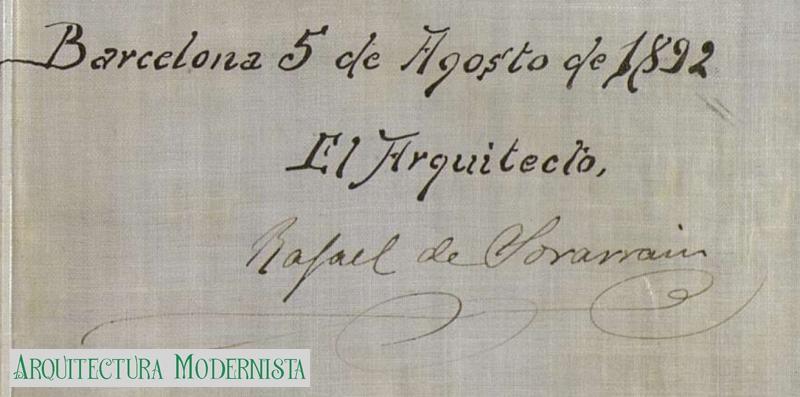 Barcelona 5 de Agosto de 1892
El Arquitecto,
Rafael de Sorarrain
ARQUITECTURA MODERNISTA